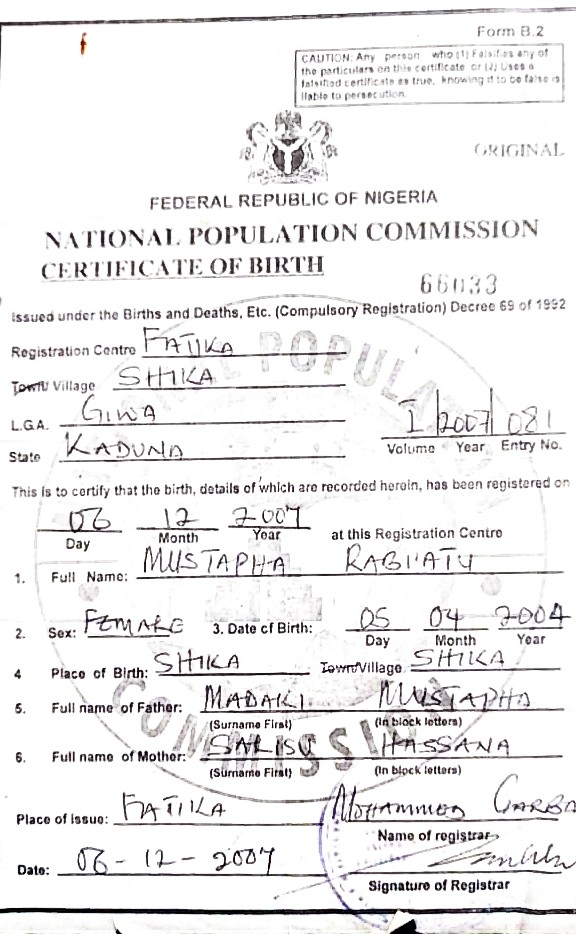 Form B.2
CAUTION: Any person who (1) Falsifies any of
the particulars on this certificate or (2) Uses a
falsified certificate as true, knowing it to be false is
liable to persecution.
ORIGINAL
FEDERAL REPUBLIC OF NIGERIA
NATIONAL POPULATION COMMISSION
CERTIFICATE OF BIRTH
66033
Issued under the Births and Deaths, Etc. (Compulsory Registration) Decree 69 of 1992
Registration Centre FATIKA
Town/ Village SHIKA
L.G.A. GIWA
I 2007 081
Volume Year Entry No.
State KADUNA
This is to certify that the birth, details of which are recorded herein, has been registered on
06 12 2007
Day Month Year at this Registration Centre
1. Full Name: MUSTAPHA RABI'ATU
2. Sex: FEMALE 3. Date of Birth: 05 04 2004
Day Month Year
4 Place of Birth: SHIKA Town/Village SHIKA
5. Full name of Father: MADAKI MUSTAPHA
(Surname First) (In block letters)
6. Full name of Mother: SARISU HASSANA
(Surname First) (In block letters)
Place of Issue: FATIKA MOHAMMED GARBA
Name of registrar
Date: 06-12-2007
Signature of Registrar
NATIONAL POPULATION COMMISSION